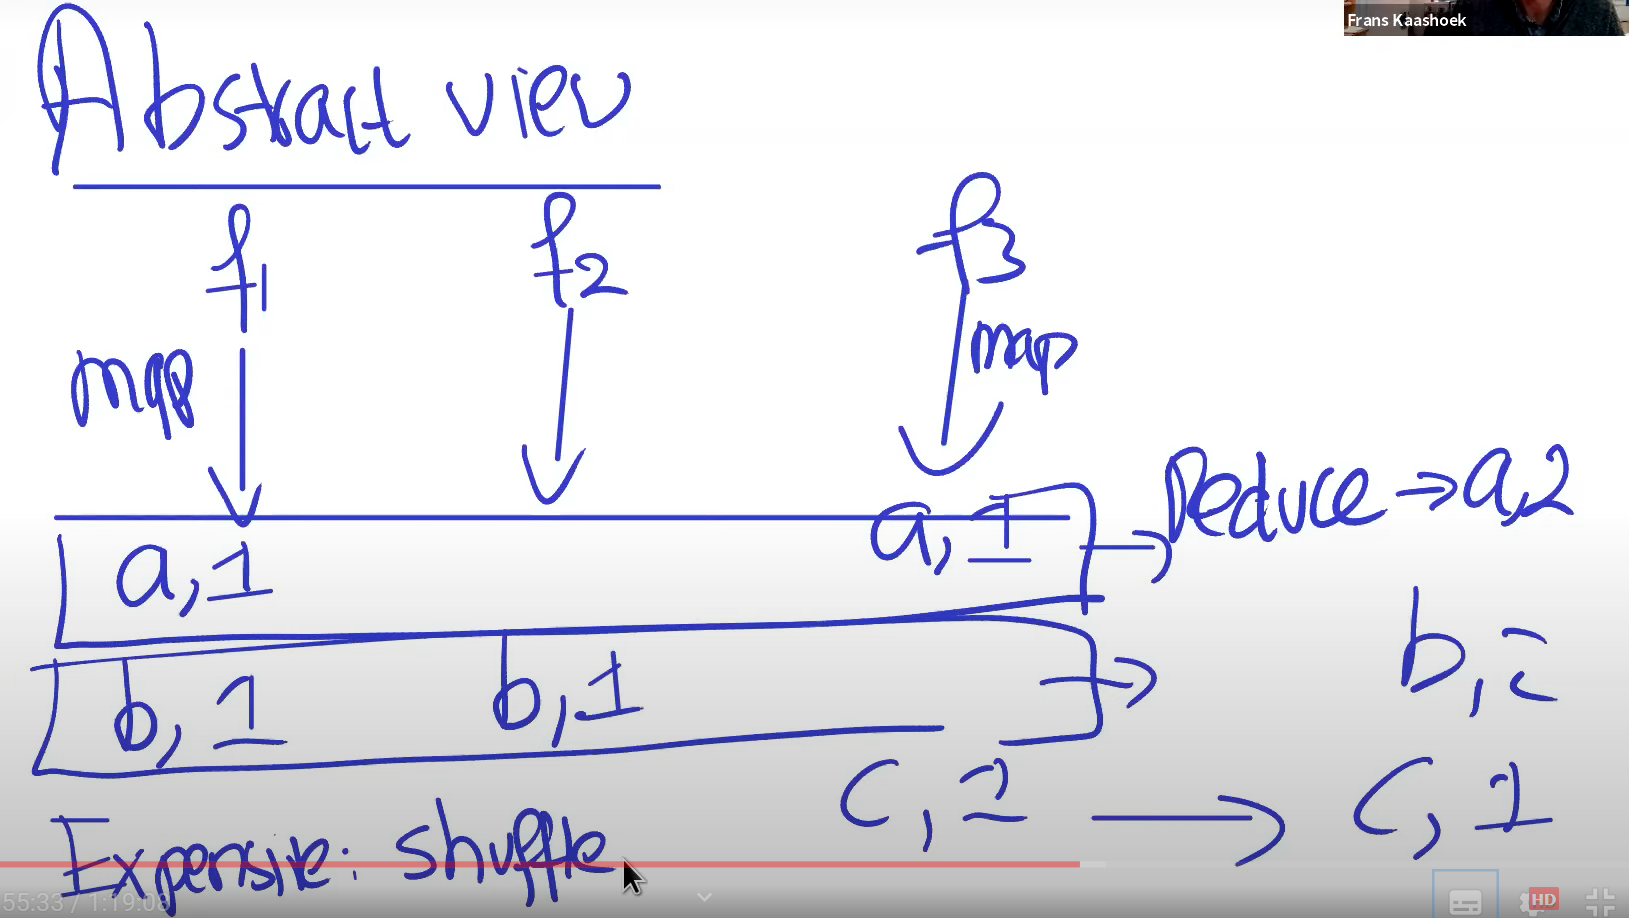 Frans Kaashoek
Abstract view
f1 f2 f3
map map
a,1 a,1 Reduce → a,2
b,1 b,1 b,2
c,2 → c,1
Expensive: shuffle
55:33 / 1:19:08
HD